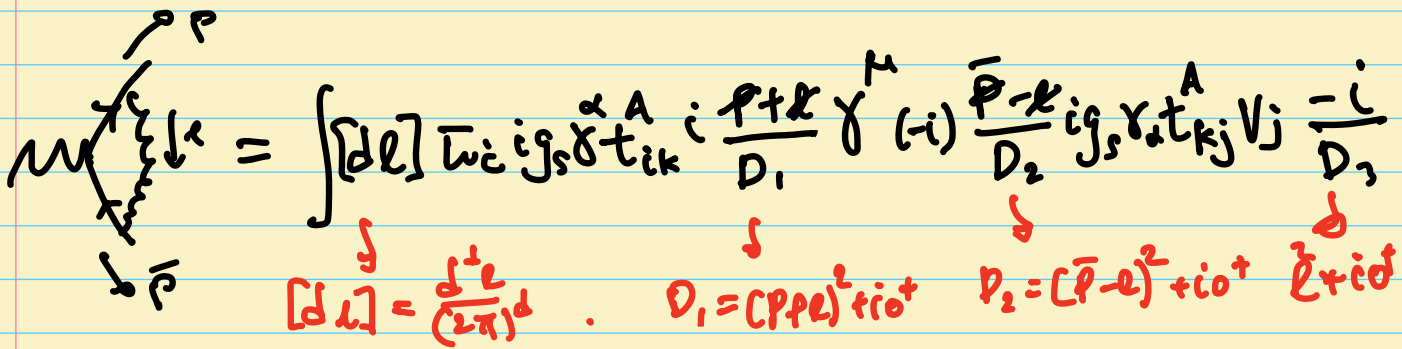 p
ℓ = ∫[dℓ] ū_i i g_s γ^α t^A_{ik} i (p̸+ℓ̸)/D_1 γ^μ (-i) (p̸̄-ℓ̸)/D_2 i g_s γ_α t^A_{kj} v_j (-i)/D_3
p̄
[dℓ] = d^dℓ/(2π)^d . D_1 = (p+ℓ)^2+i0^+ D_2 = (p̄-ℓ)^2+i0^+ ℓ^2+i0^+